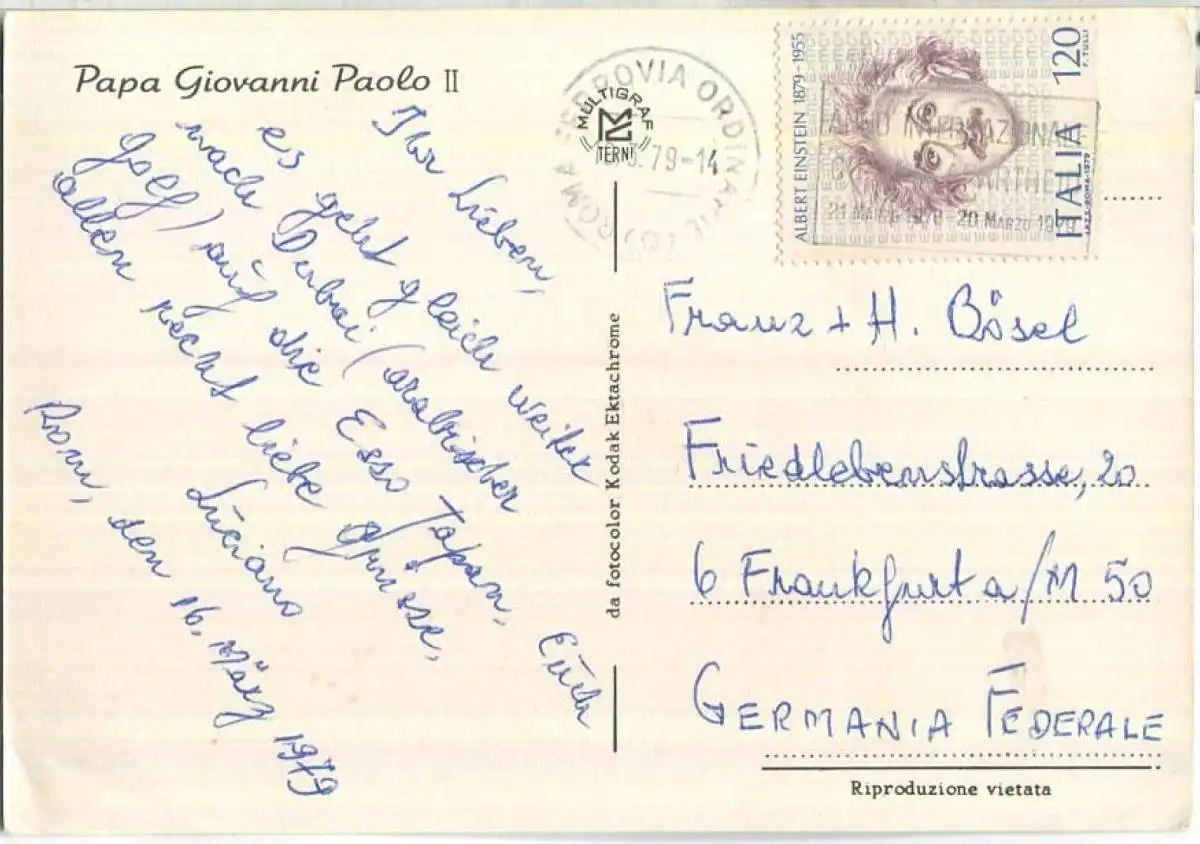 Papa Giovanni Paolo II
Ihr Lieben,
es geht gleich weiter
nach Dubai (arabischer
Golf) auf die Esso Japan. Euch
allen recht liebe Grüsse.
Luciano
Rom, den 16. März 1979
MULTIGRAF
TERNI
ROMA FERROVIA ORDINARIE
.79-14
ALBERT EINSTEIN 1879-1955
ITALIA 120
F. TULLI
I.P.Z.S. ROMA-1979
21 MARZO 1978 - 20 MARZO 1979
da fotocolor Kodak Ektachrome
Franz + H. Bösel
Friedlebenstrasse, 20
6 Frankfurt a/M 50
GERMANIA FEDERALE
Riproduzione vietata